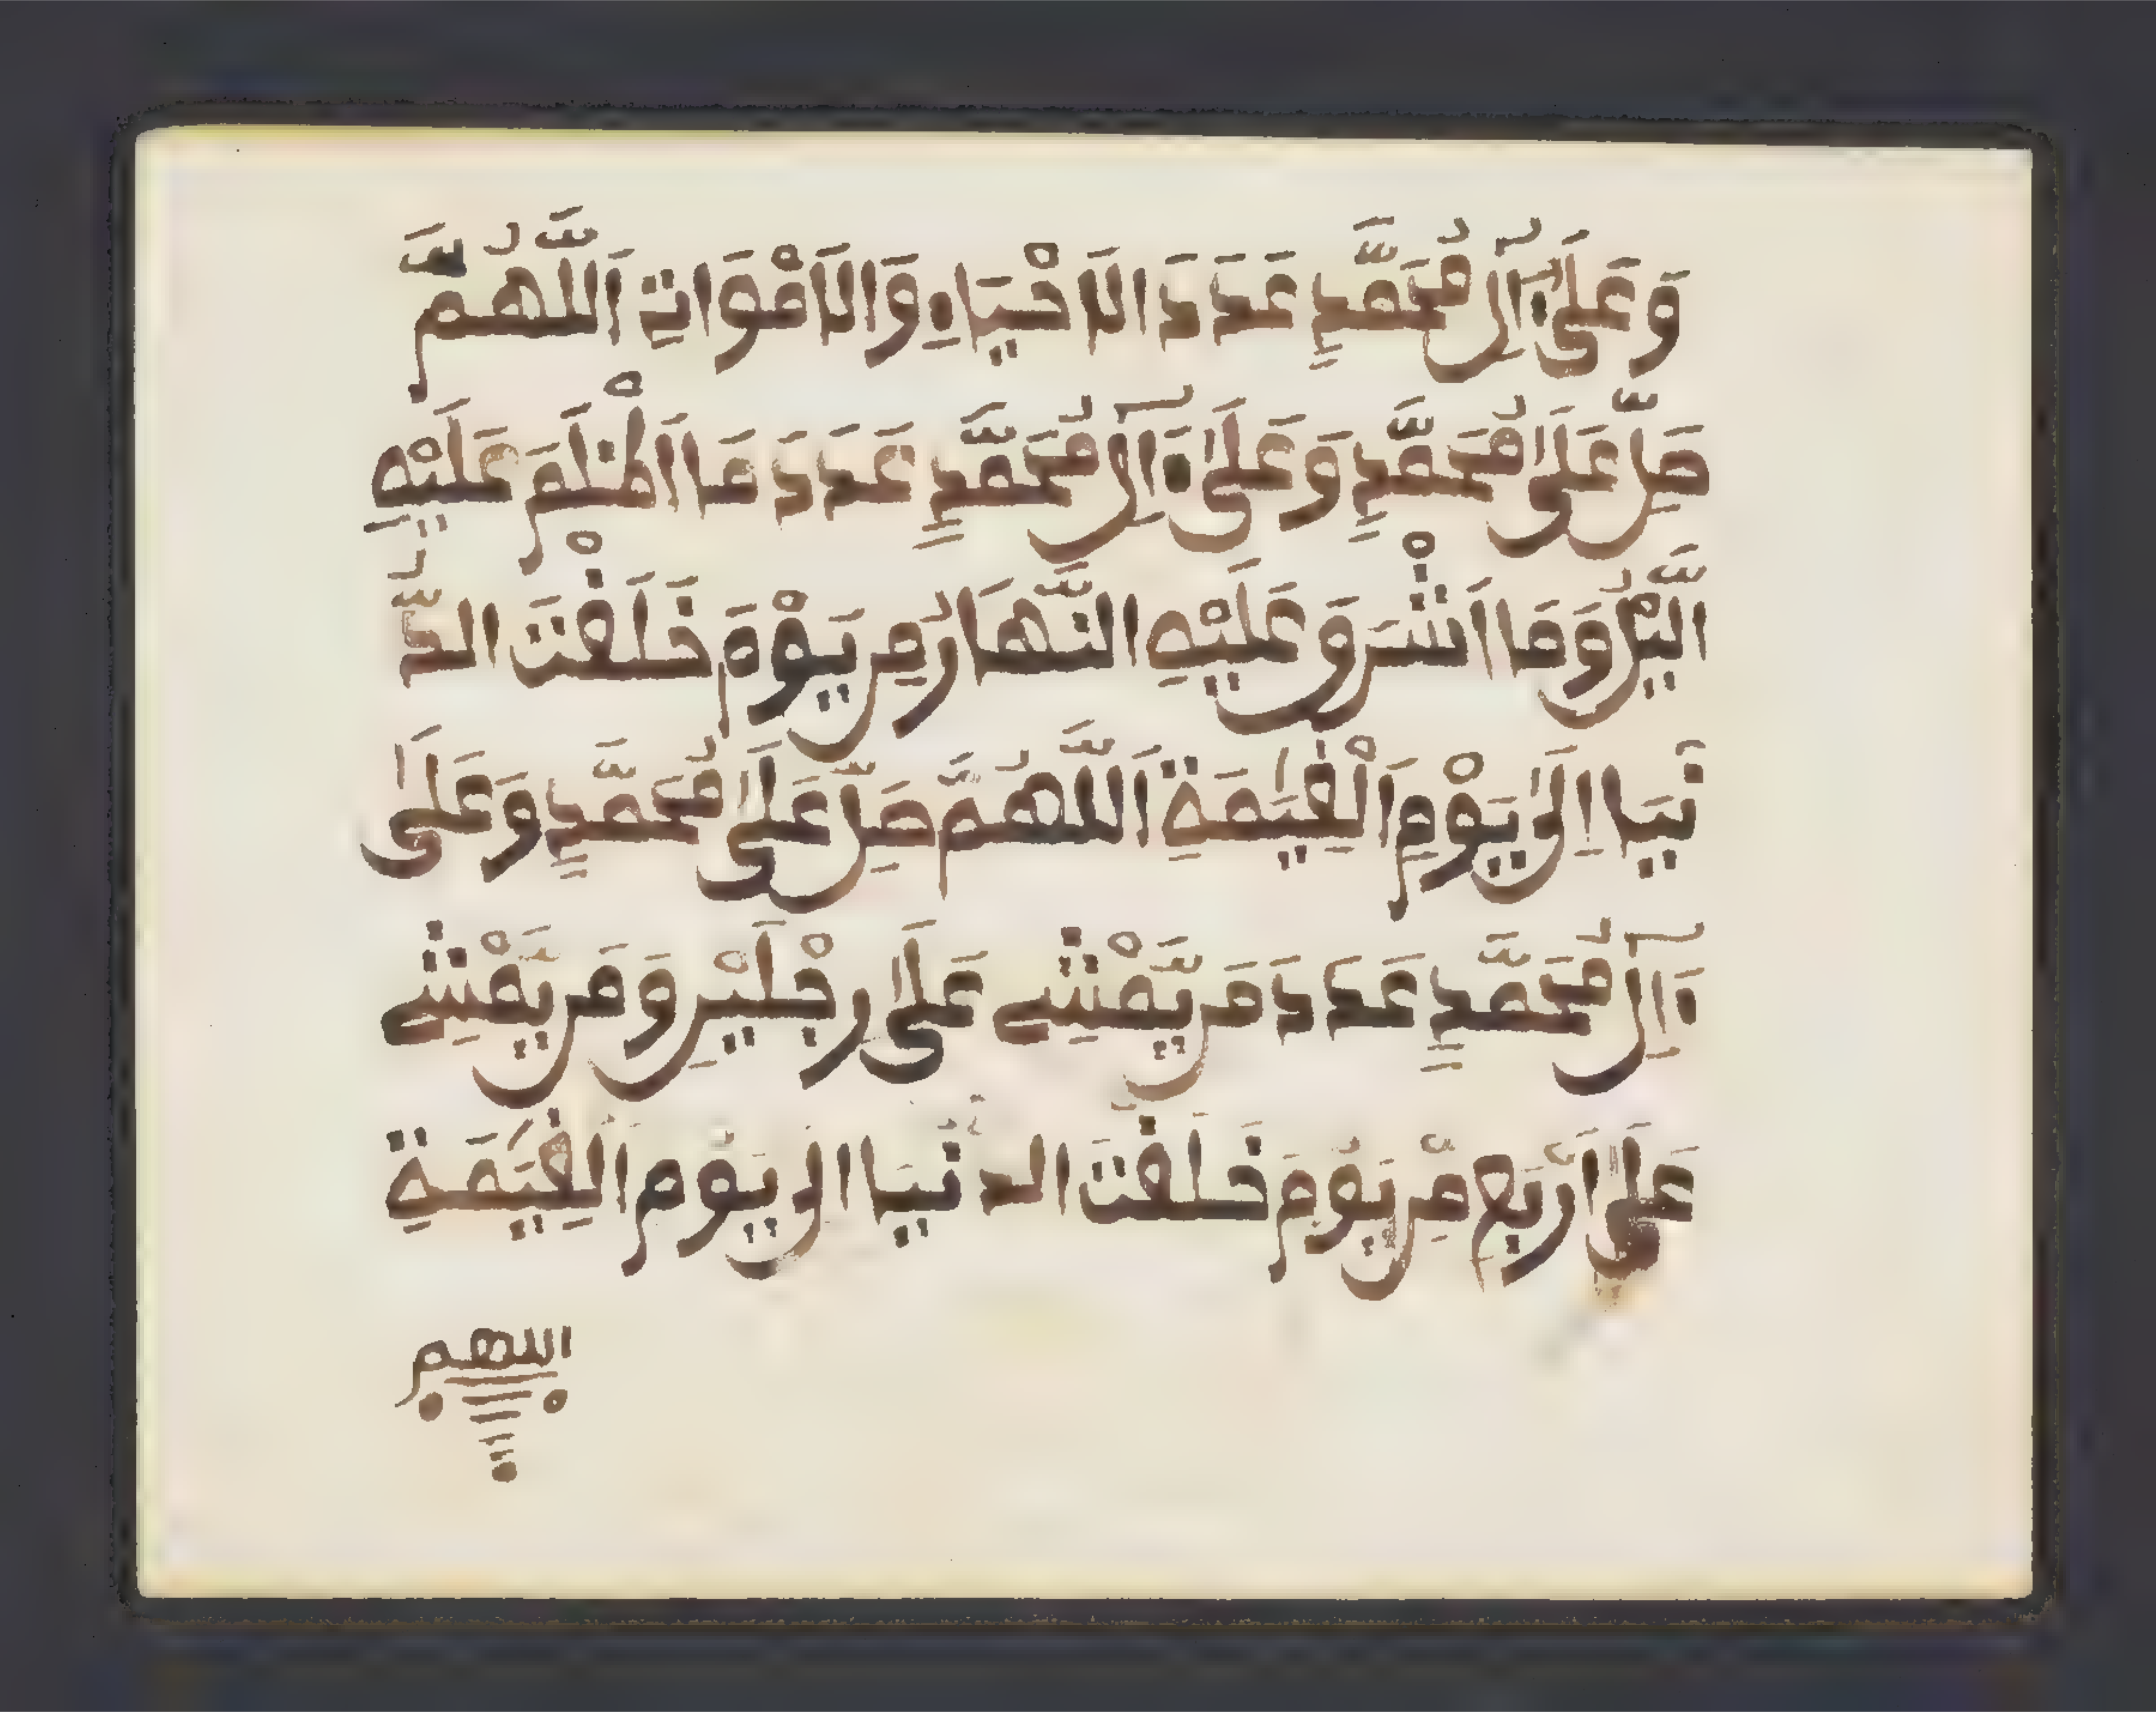 وَعَلَىٰ ءَالِ مُحَمَّدٍ عَدَدَ الَاحْيَاءِ وَالَامْوَاتِ اَللَّهُمَّ
صَلِّ عَلَىٰ مُحَمَّدٍ وَعَلَىٰ ءَالِ مُحَمَّدٍ عَدَدَ مَا اَظْلَمَ عَلَيْهِ
الَّيْلُ وَمَا اَشْرَقَ عَلَيْهِ النَّهَارُ مِن يَوْمَ خَلَقْتَ الدُّ
نْيَا اِلَىٰ يَوْمِ اَلْقِيَٰمَةِ اَللَّهُمَّ صَلِّ عَلَىٰ مُحَمَّدٍ وَعَلَىٰ
ءَالِ مُحَمَّدٍ عَدَدَ مَن يَّمْشِے عَلَىٰ رِجْلَيْنِ وَمَن يَّمْشِے
عَلَىٰ اَرْبَعٍ مِّن يَوْمَ خَلَقْتَ الدنْيَا الى يَوْمِ الْقِيَٰمَةِ
اللهم